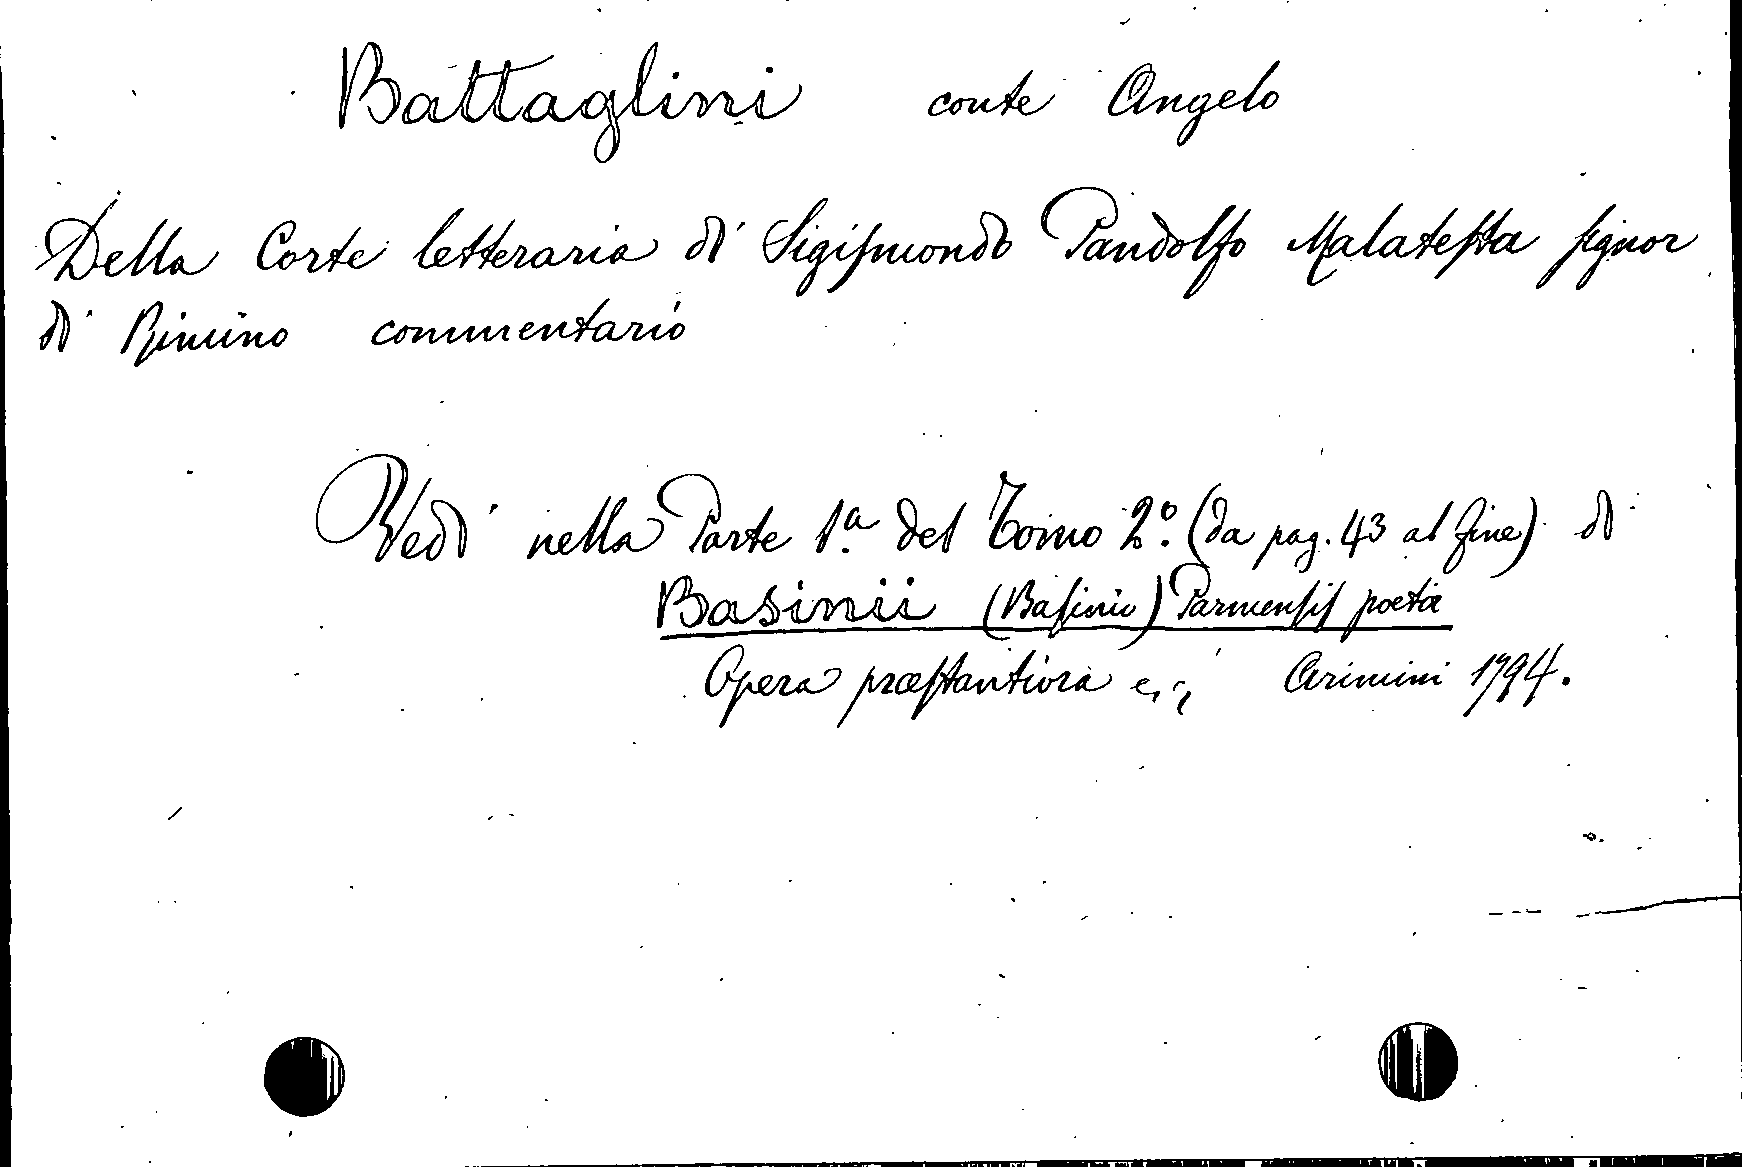 Battaglini conte Angelo
Della Corte letteraria di Sigiſmondo Pandolfo Malateſta ſignor
di Rimino commentario
Vedi nella Parte 1.a del Tomo 2.o (da pag. 43 al fine) di
Basinii (Baſinio) Parmenſiſ poetæ
Opera præſtantiora Arimini 1794.